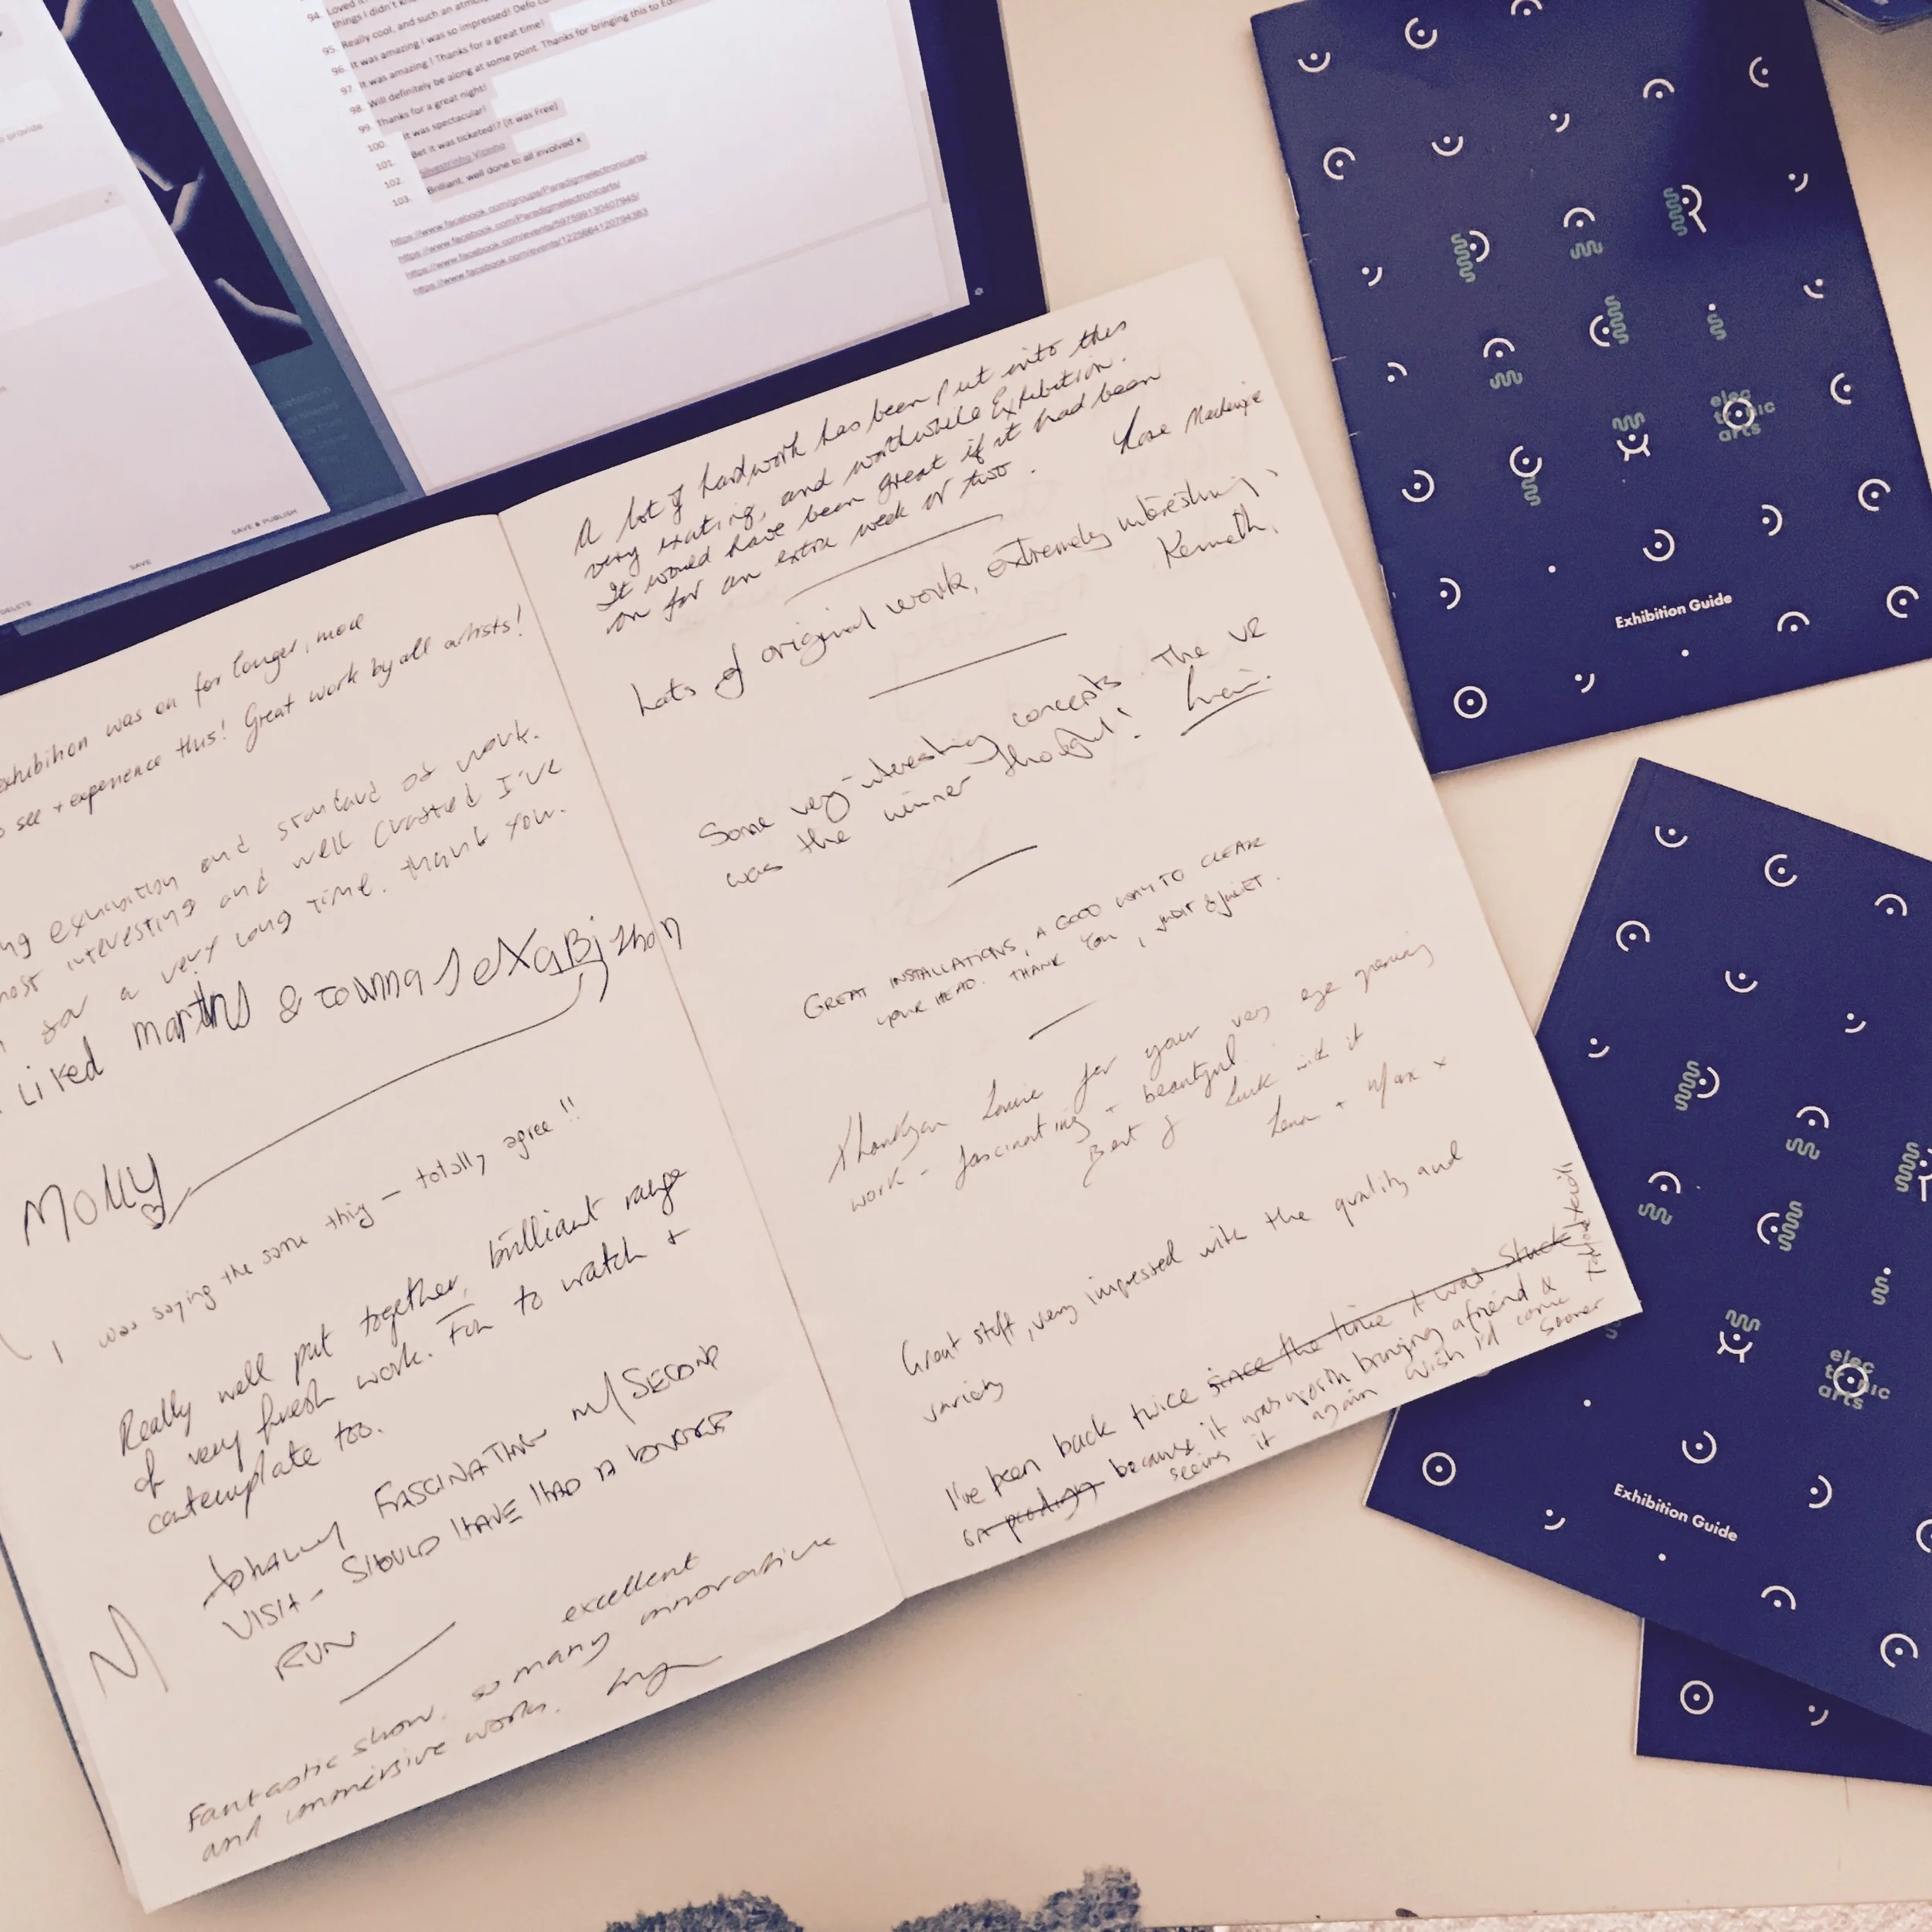 94. Loved it!
things I didn't kn
95. Really cool, and such an atmo
96. It was amazing i was so impressed! Defo co
97. It was amazing ! Thanks for a great time!
98. Will definitely be along at some point. Thanks for bringing this to Edi
99. Thanks for a great night!
100. It was spectacular!
101. Bet it was ticketed!? (it was Free)
102. Silvestrinho Vicinho
103. Brilliant, well done to all involved x
https://www.facebook.com/groups/Paradigmelectronicarts/
https://www.facebook.com/Paradigmelectronicarts/
https://www.facebook.com/events/597599130407945/
https://www.facebook.com/events/1225664120794383
o provide
DELETE
SAVE
SAVE & PUBLISH
exhibition was on for longer, more
o see + experience this! Great work by all artists!
ng exhibition and standard of work.
most interesting and well crafted I've
for a very long time. thank you.
Liked martins &
MOLLY
I was saying the same thing – totally agree!!
Really well put together, brilliant range
of very fresh work. Fun to watch +
contemplate too.
FASCINATING W/ SECOND
VISIT – SHOULD HAVE HAD A LONGER
RUN
excellent
Fantastic show. so many innovative
and immersive works.
A lot of hardwork has been put into this
very exiting, and worthwhile Exhibition.
It would have been great if it had been
on for an extra week or two.
Mackenzie
Lots of original work, extremely interesting
Kenneth.
Some very interesting concepts. The VR
was the winner though!
GREAT INSTALLATIONS, A GOOD WAY TO CLEAR
YOUR HEAD. THANK YOU,
Thankyou for your very eye opening
work – fascinating + beautiful.
Best of luck with it
+ Max x
Great stuff, very impressed with the quality and
variety
I've been back twice since the time it was stuck
because it was worth bringing a friend &
seeing it again wish I'd come
sooner
elec
tronic
arts
Exhibition Guide
elec
tronic
arts
Exhibition Guide